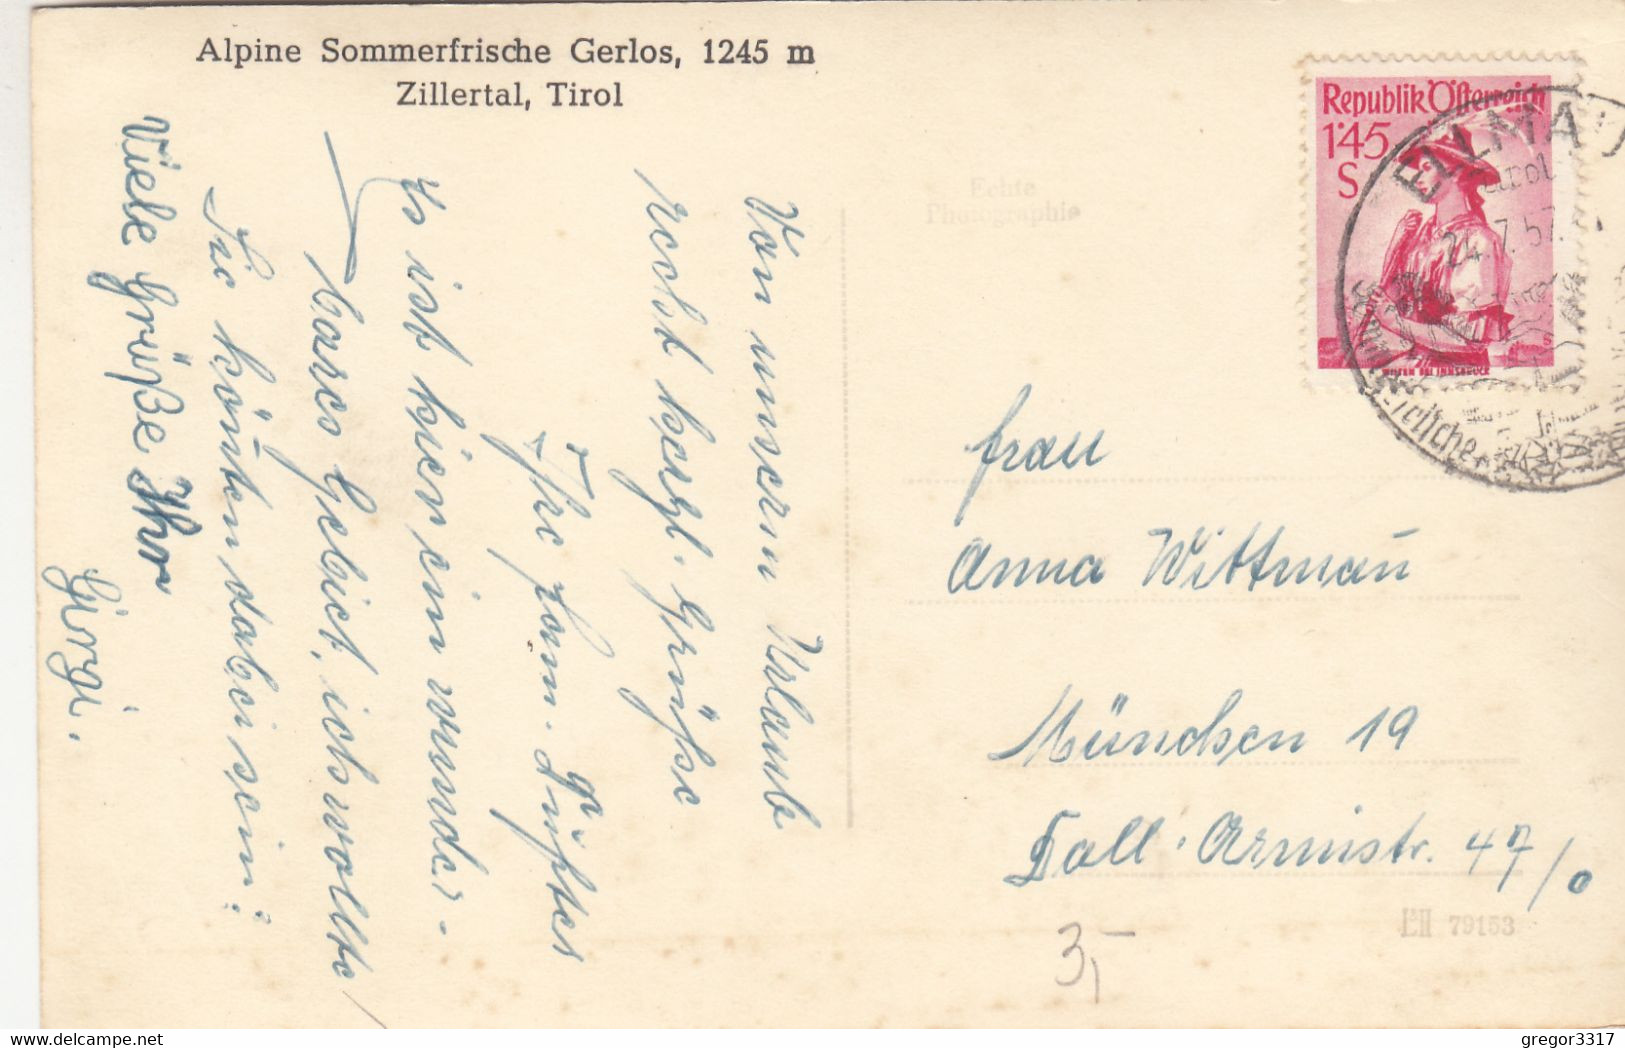 Alpine Sommerfrische Gerlos, 1245 m
Zillertal, Tirol
Von unserm Urlaub
recht herzl. Grüße
Ihre Fam.
Es ist hier ein wunder-
bares Gebiet, ich wollte
Sie könnten dabei sein!
Viele Grüße Ihr
Girgi.
Echte
Photographie
Republik Österreich
1'45
S
WILTEN BEI INNSBRUCK
ELLMAU
Tirol
24.7.57.
Frau
Anna Wittman
München 19
Dall'Armistr. 47/0
79153
3,-
gregor3317